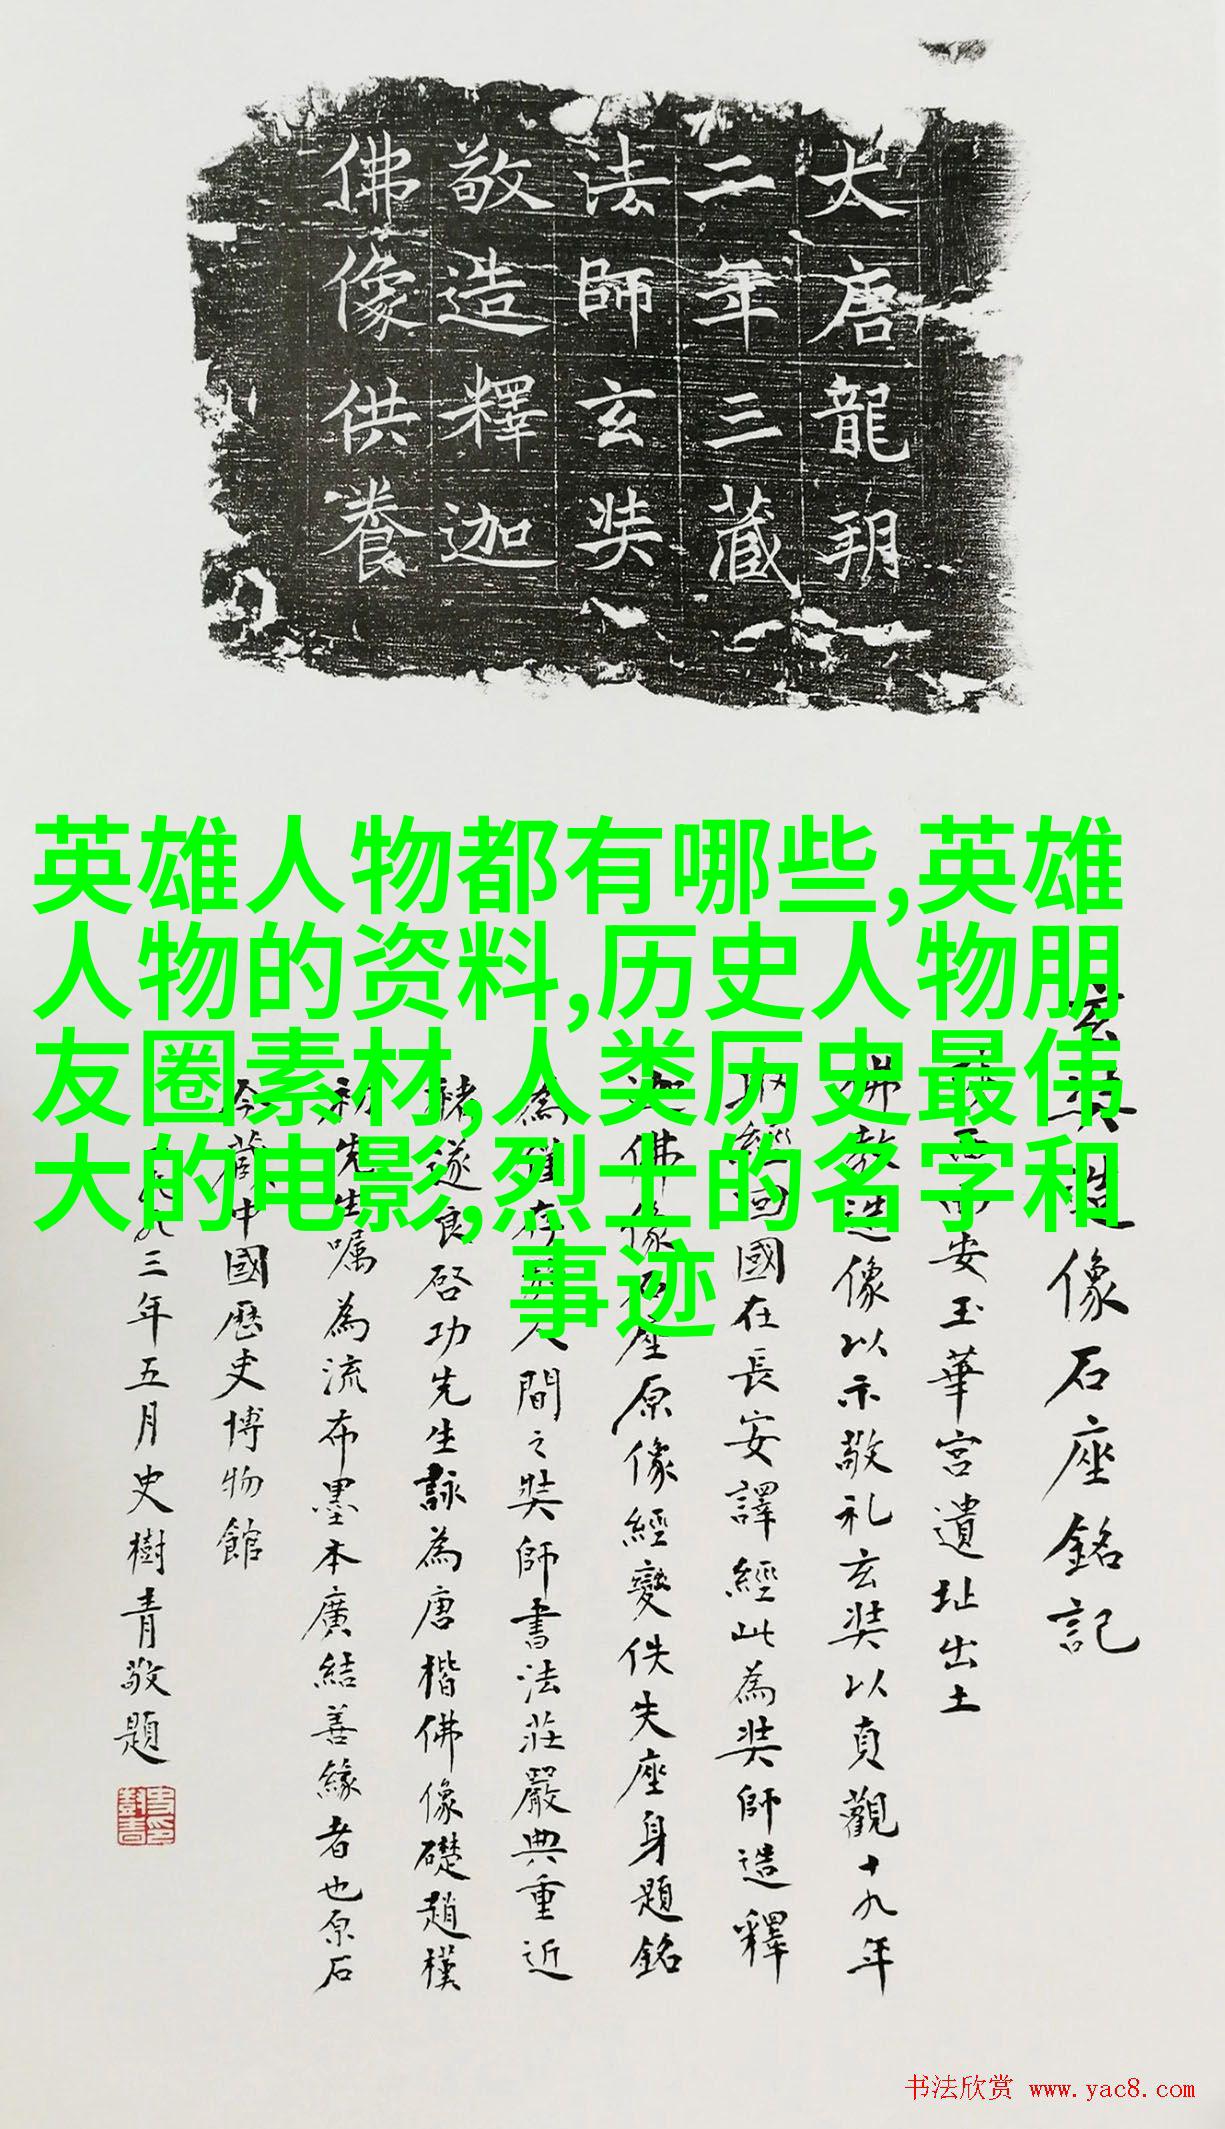 大唐龍朔
二年三藏
法師玄奘
敬造釋迦
佛像供養
英雄人物都有哪些,英雄
人物的资料,历史人物朋
友圈素材,人类历史最伟
大的电影,烈士的名字和
事迹
玄奘造像石座銘記
安玉華宮遺址出土
佛教造像以示敬礼玄奘以貞觀十九年
取經回國在長安譯經此為奘師造釋
迦佛像石座原像經變佚失座身題銘
為僅存人間之奘師書法莊嚴典重近
褚遂良启功先生詠為唐楷佛像礎趙樸
初先生嘱為流布墨本廣結善緣者也原石
今藏中國歷史博物館
三年五月史樹青敬題
书法欣赏 www.yac8.com